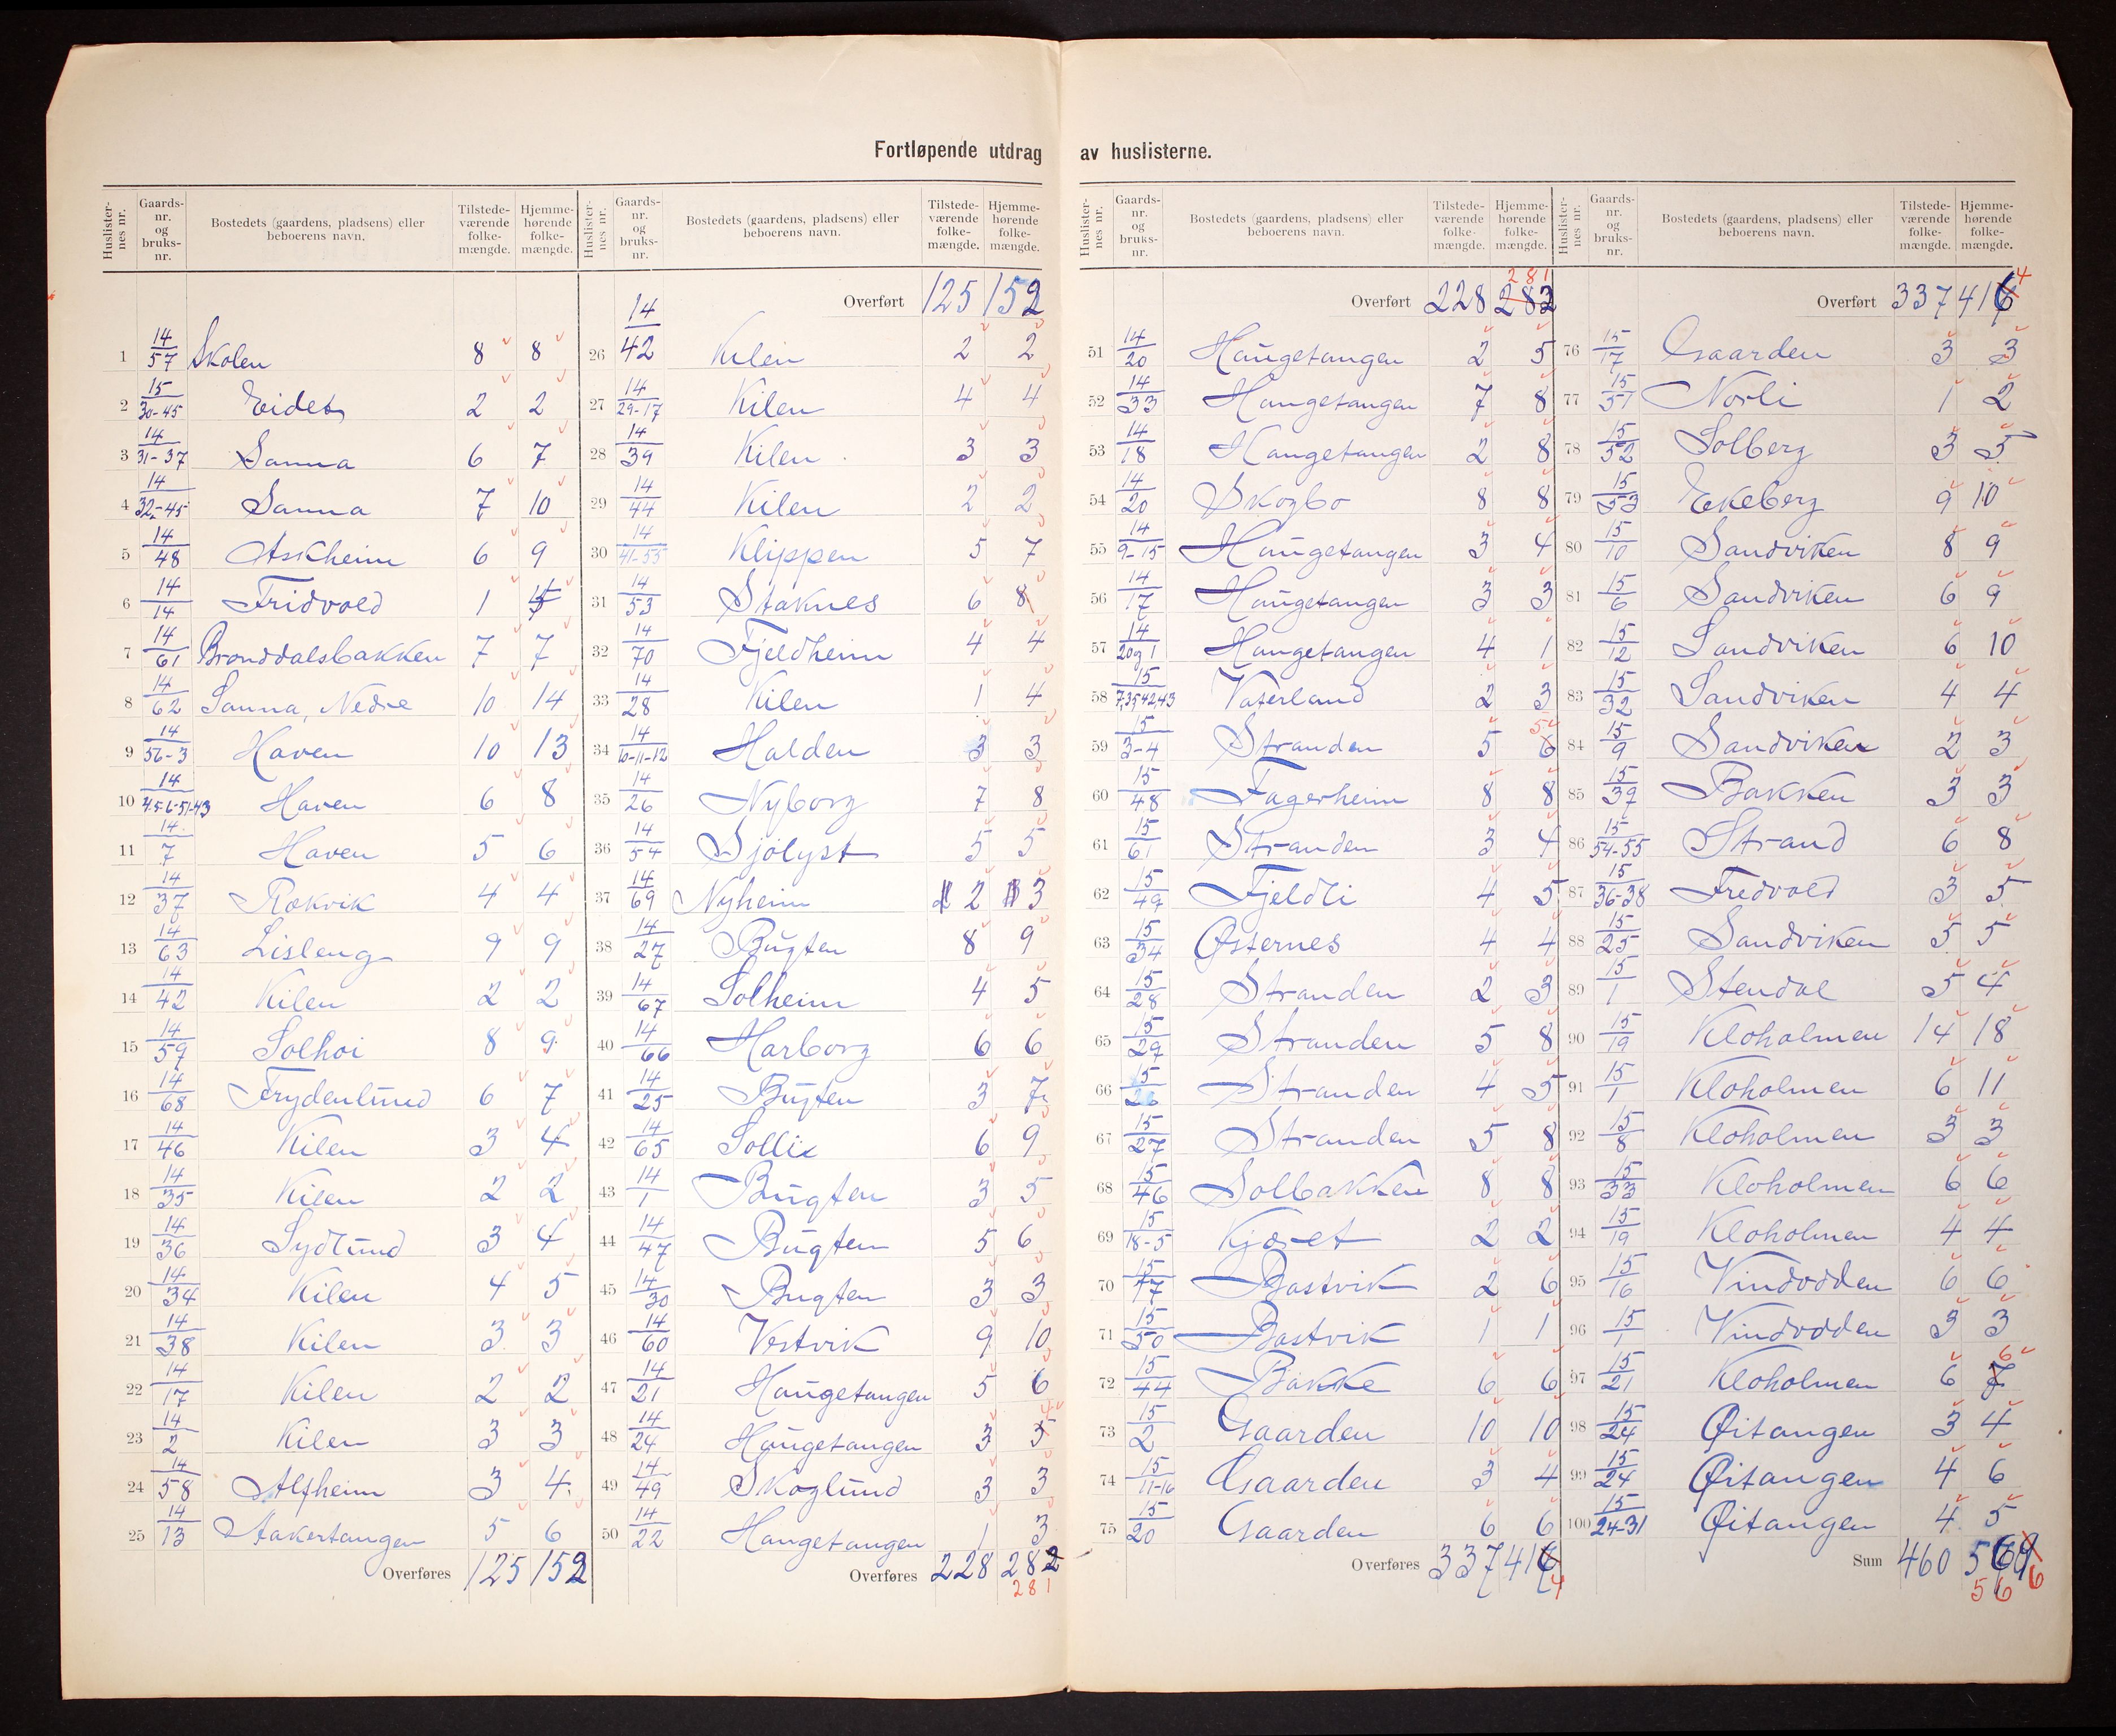 Fortløpende utdrag av huslisterne.
Huslisternes nr. Gaards-nr. og bruks-nr. Bostedets (gaardens, pladsens) eller beboerens navn. Tilstedeværende folkemængde. Hjemmehørende folkemængde.
1 14/57 Skolen 8 8
2 15/30-45 Eidet 2 2
3 14/31-37 Sanna 6 7
4 14/32-45 Sanna 7 10
5 14/48 Askheim 6 9
6 14/14 Fridvold 1
7 14/61 Bronddalsbakken 7 7
8 14/62 Sanna, Nedre 10 14
9 14/56-3 Haven 10 13
10 14/4-5-6-51-43 Haven 6 8
11 14/7 Haven 5 6
12 14/37 Rækvik 4 4
13 14/63 Lisleng 9 9
14 14/42 Kilen 2 2
15 14/59 Solhoi 8 9
16 14/68 Frydenlund 6 7
17 14/46 Kilen 3 4
18 14/35 Kilen 2 2
19 14/36 Sydlund 3 4
20 14/34 Kilen 4 5
21 14/38 Kilen 3 3
22 14/17 Kilen 2 2
23 14/2 Kilen 3 3
24 14/58 Alfheim 3 4
25 14/13 Stakertangen 5 6
Overføres 125 152
Huslisternes nr. Gaards-nr. og bruks-nr. Bostedets (gaardens, pladsens) eller beboerens navn. Tilstedeværende folkemængde. Hjemmehørende folkemængde.
Overført 125 152
26 14/42 Kilen 2 2
27 14/29-17 Kilen 4 4
28 14/39 Kilen 3 3
29 14/44 Kilen 2 2
30 14/41-55 Klippen 5 7
31 14/53 Staknes 6 8
32 14/70 Fjeldheim 4 4
33 14/28 Kilen 1 4
34 14/10-11-12 Halden 3 3
35 14/26 Nyborg 7 8
36 14/54 Sjölyst 5 5
37 14/69 Nyheim 2 3
38 14/27 Bugten 8 9
39 14/67 Solheim 4 5
40 14/66 Harborg 6 6
41 14/25 Bugten 3 7
42 14/65 Sollie 6 9
43 14/1 Bugten 3 5
44 14/47 Bugten 5 6
45 14/30 Bugten 3 3
46 14/60 Vestvik 9 10
47 14/21 Haugetangen 5 6
48 14/24 Haugetangen 3 4
49 14/49 Skoglund 3 3
50 14/22 Haugetangen 1 3
Overføres 228 282
281
Huslisternes nr. Gaards-nr. og bruks-nr. Bostedets (gaardens, pladsens) eller beboerens navn. Tilstedeværende folkemængde. Hjemmehørende folkemængde.
281
Overført 228 282
51 14/20 Haugetangen 2 5
52 14/33 Haugetangen 7 8
53 14/18 Haugetangen 2 8
54 14/20 Skogbo 8 8
55 14/9-15 Haugetangen 3 4
56 14/17 Haugetangen 3 3
57 14/20og1 Haugetangen 4 1
58 15/7,35,42,43 Vaterland 2 3
59 15/3-4 Stranden 5 6 5
60 15/48 Fagerheim 8 8
61 15/61 Stranden 3 4
62 15/49 Fjeldli 4 5
63 15/34 Østernes 4 4
64 15/28 Stranden 2 3
65 15/29 Stranden 5 8
66 15/26 Stranden 4 5
67 15/27 Stranden 5 8
68 15/46 Solbakken 8 8
69 15/18-5 Kjæret 2 2
70 15/47 Bastvik 2 6
71 15/50 Bastvik 1 1
72 15/44 Bakke 6 6
73 15/2 Gaarden 10 10
74 15/11-16 Gaarden 3 4
75 15/20 Gaarden 6 6
Overføres 337 416 4
Huslisternes nr. Gaards-nr. og bruks-nr. Bostedets (gaardens, pladsens) eller beboerens navn. Tilstedeværende folkemængde. Hjemmehørende folkemængde.
Overført 337 416 4
76 15/17 Gaarden 3 3
77 15/51 Norli 1 2
78 15/52 Solberg 3 5
79 15/53 Ekeberg 9 10
80 15/10 Sandviken 8 9
81 15/6 Sandviken 6 9
82 15/12 Sandviken 6 10
83 15/32 Sandviken 4 4
84 15/9 Sandviken 2 3
85 15/39 Bakken 3 3
86 15/54-55 Strand 6 8
87 15/36-38 Fredvold 3 5
88 15/25 Sandviken 5 5
89 15/1 Stendal 5 4
90 15/19 Kloholmen 14 18
91 15/1 Kloholmen 6 11
92 15/8 Kloholmen 3 3
93 15/33 Kloholmen 6 6
94 15/19 Kloholmen 4 4
95 15/16 Vindodden 6 6
96 15/1 Vindodden 3 3
97 15/21 Kloholmen 6 7 6
98 15/24 Øitangen 3 4
99 15/24 Øitangen 4 6
100 15/24-31 Øitangen 4 5
Sum 460 569
566